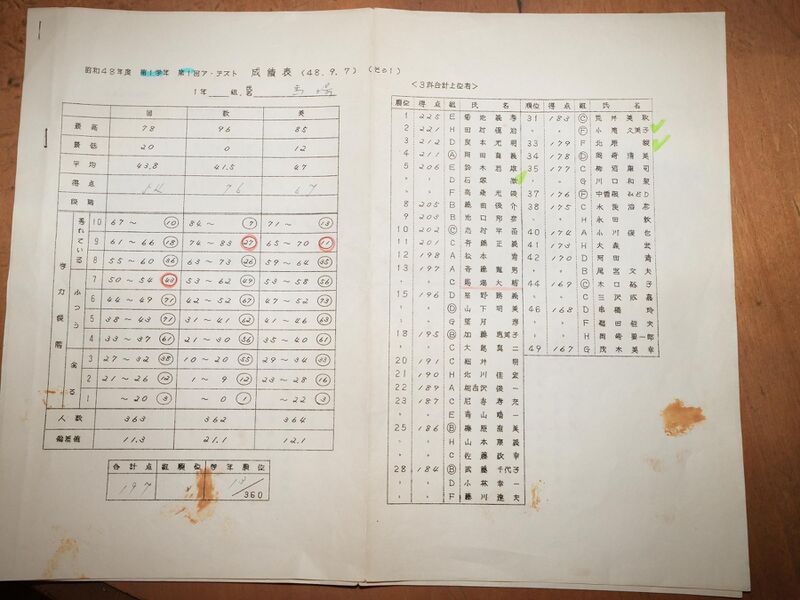 昭和48年度 第1学年 第1回ア・テスト 成績表 (48.9.7) (その1)
1年 組 氏名 馬場
国 数 英
最高 78 96 85
最低 20 0 12
平均 43.8 41.5 47
得点 54 76 67
段階
学力段階
優れている
10 67~ 10 84~ 7 71~ 13
9 61~66 18 74~83 27 65~70 11
8 55~60 36 63~73 26 59~64 35
ふつう
7 50~54 43 53~62 49 53~58 56
6 44~49 71 42~52 67 47~52 73
5 38~43 71 31~41 62 41~46 63
4 33~37 61 21~30 56 35~40 61
劣る
3 27~32 38 10~20 55 29~34 33
2 21~26 12 1~9 12 23~28 16
1 ~20 3 ~0 1 ~22 3
人数 363 362 364
偏差値 11.3 21.1 12.1
合計点 組順位 学年順位
197 13/360
<3科合計上位者>
順位 得点 組 氏 名
1 225 E 菊池義孝
2 222 H 田村保治
3 212 D 光明
4 211 A 岡田直義
5 206 E 鈴木忠雄
〃 〃 D 石塚徹
〃 〃 F 高桑光俊
8 205 B 織田俊介
9 203 B 池口邦彦
10 202 C 志村宇苗
11 201 C 斉藤正義
12 198 A 松本
13 197 A 斉龍男
〃 〃 C 馬場大
15 196 D 星野路義
〃 〃 D 山下明美
〃 〃 G 望月
18 195 B 加藤恵美子
〃 〃 C 大島賢二
20 191 C 細井明
21 190 H 北川佳宏
22 189 A 沢俊一
23 187 C 孝充
〃 〃 E 青山陽一
25 186 B 原准美
〃 〃 H 山本康義
〃 〃 C 佐藤欽幸
28 184 B 武藤千代子
〃 〃 D 小林幸一
〃 〃 F 藤川進夫
順位 得点 組 氏 名
31 183 C 荒井美
〃 〃 F 小滝久美子
33 179 F 北原毅
34 178 D 岡崎清美
35 177 C 柳沼和司
〃 〃 G 川口聖
37 176 F 中
38 175 C 水渡治
〃 〃 H 永田欽也
40 174 A 小楠俊也
41 173 H 大森宏
42 170 D 阿部
〃 〃 B 尾宮文夫
44 169 C 木村裕子
〃 〃 C 三沢嘉
46 168 D 串橋玲
〃 〃 F 福田
〃 〃 H 岡崎聖一郎
49 167 G 茂木美幸